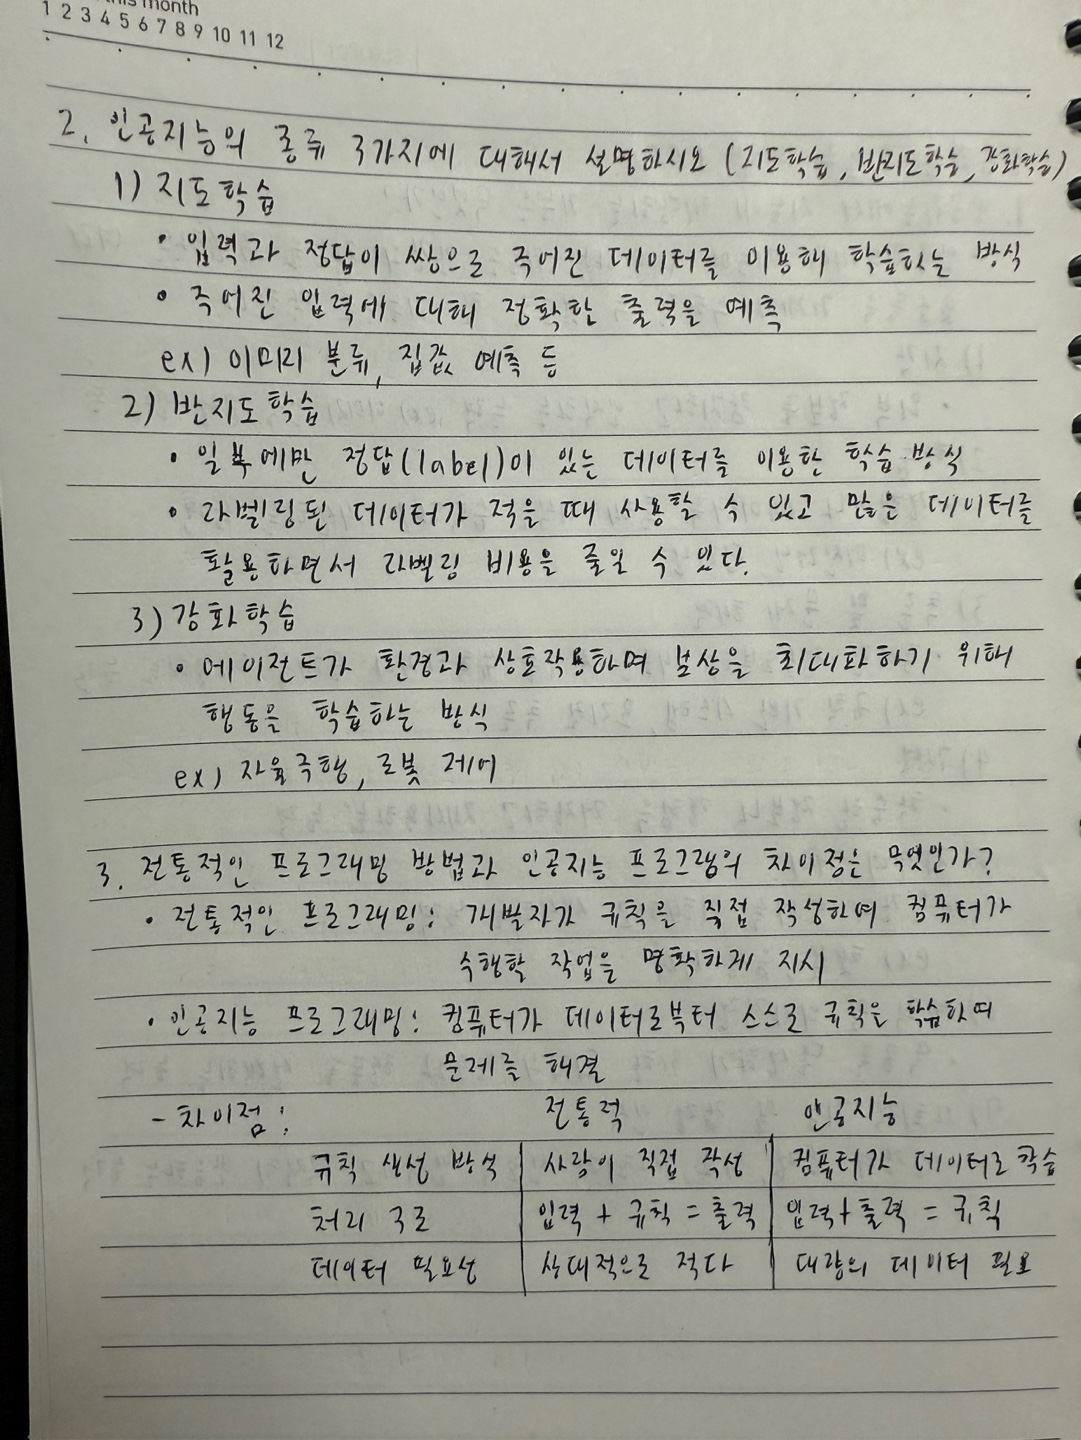 this month
1 2 3 4 5 6 7 8 9 10 11 12
2. 인공지능의 종류 3가지에 대해서 설명하시오 (지도학습, 반지도학습, 강화학습)
1) 지도학습
• 입력과 정답이 쌍으로 주어진 데이터를 이용해 학습하는 방식
• 주어진 입력에 대해 정확한 출력을 예측
ex) 이미지 분류, 집값 예측 등
2) 반지도학습
• 일부에만 정답(label)이 있는 데이터를 이용한 학습 방식
• 라벨링된 데이터가 적을 때 사용할 수 있고 많은 데이터를
활용하면서 라벨링 비용을 줄일 수 있다.
3) 강화학습
• 에이전트가 환경과 상호작용하며 보상을 최대화하기 위해
행동을 학습하는 방식
ex) 자율주행, 로봇 제어
3. 전통적인 프로그래밍 방법과 인공지능 프로그램의 차이점은 무엇인가?
• 전통적인 프로그래밍: 개발자가 규칙을 직접 작성하여 컴퓨터가
수행할 작업을 명확하게 지시
• 인공지능 프로그래밍: 컴퓨터가 데이터로부터 스스로 규칙을 학습하여
문제를 해결
- 차이점: 전통적 인공지능
규칙 생성 방식 사람이 직접 작성 컴퓨터가 데이터로 학습
처리 구조 입력 + 규칙 = 출력 입력+출력 = 규칙
데이터 필요성 상대적으로 적다 대량의 데이터 필요